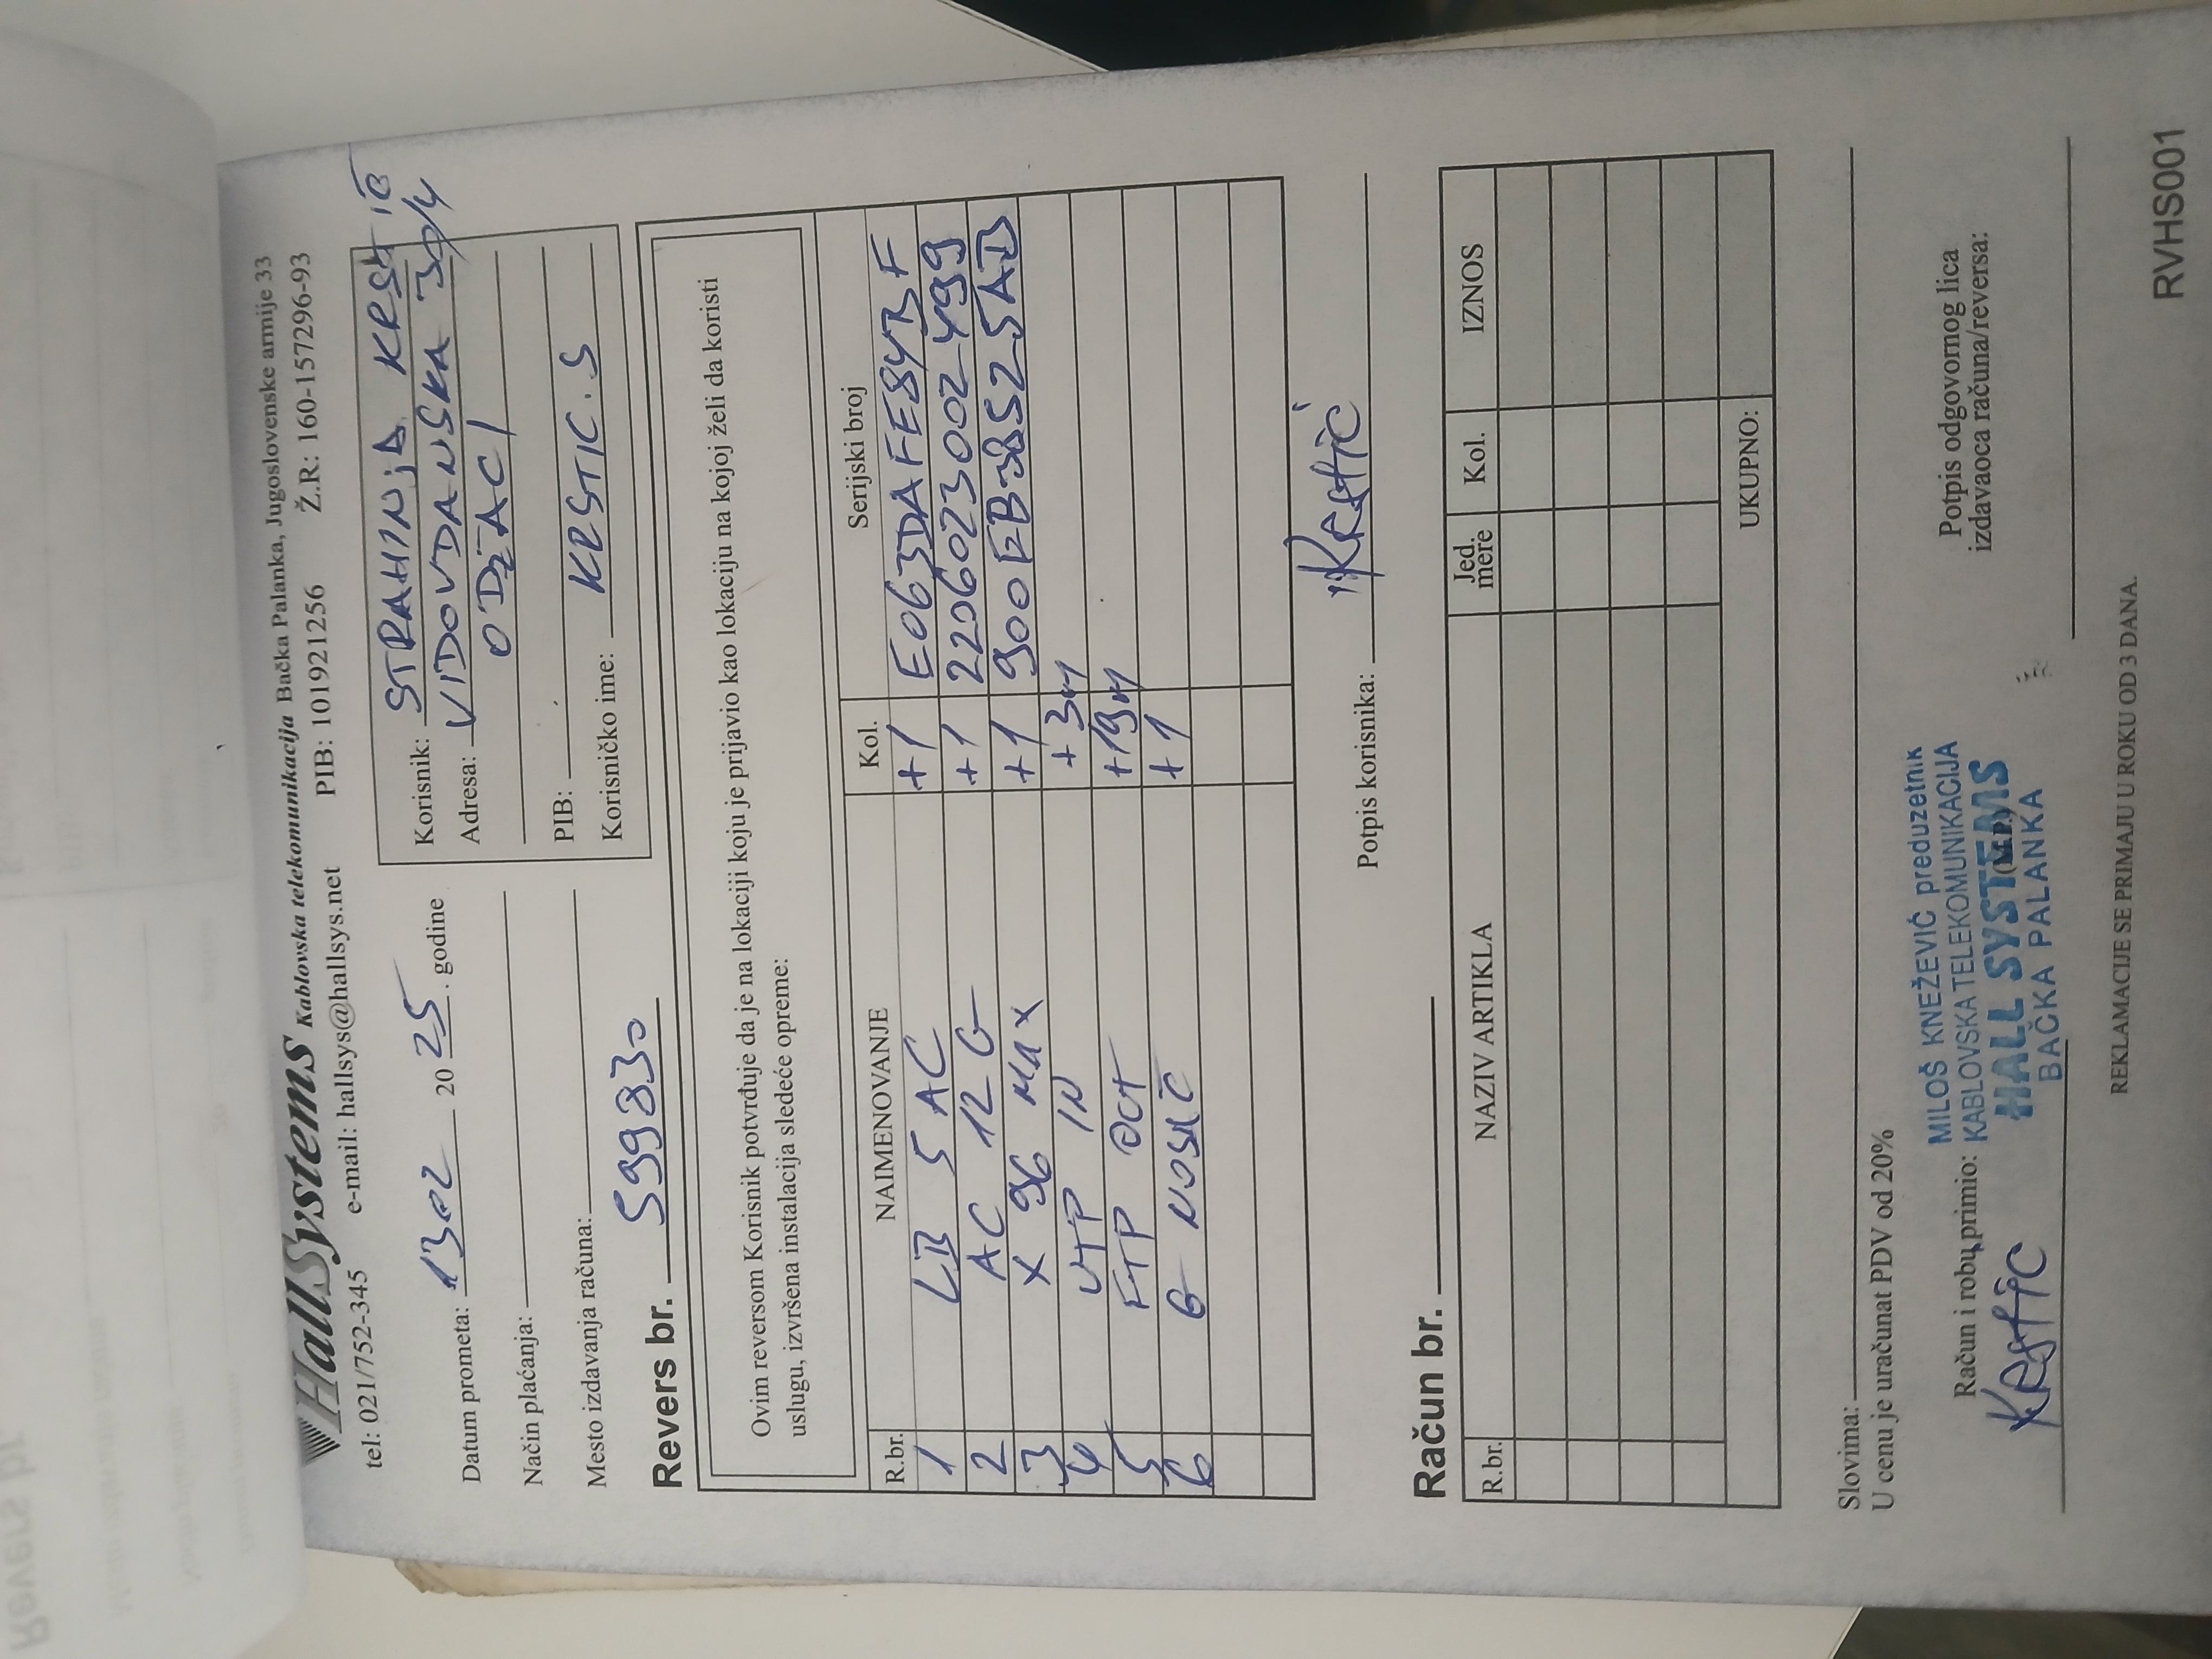 HallSystems Kablovska telekomunikacija Bačka Palanka, Jugoslovenske armije 33
tel: 021/752-345 e-mail: hallsys@hallsys.net PIB: 101921256 Ž.R: 160-157296-93
Datum prometa: 13.02 2025. godine
Način plaćanja:
Mesto izdavanja računa:
Korisnik: STRAHINJA KRSTIĆ
Adresa: VIDOVDANSKA 30/4
ODŽACI
PIB:
Korisničko ime: KRSTIC.S
Revers br. 59930
Ovim reversom Korisnik potvrđuje da je na lokaciji koju je prijavio kao lokaciju na kojoj želi da koristi
uslugu, izvršena instalacija sledeće opreme:
R.br. NAIMENOVANJE Kol. Serijski broj
1 LB 5 AC +1 E063DAFE84BF
2 AC 12 G +1 2206023002499
3 X 96 MAX +1 900EB38525AB
4 UTP IN +3m
5 FTP OUT +19m
6 G NOSAČ +1
Potpis korisnika: Krstić
Račun br.
R.br. NAZIV ARTIKLA Jed. mere Kol. IZNOS
UKUPNO:
Slovima:
U cenu je uračunat PDV od 20%
Račun i robu primio:
Krstić
MILOŠ KNEŽEVIĆ preduzetnik
KABLOVSKA TELEKOMUNIKACIJA
HALL SYSTEMS
BAČKA PALANKA
(M.P.)
Potpis odgovornog lica
izdavaoca računa/reversa:
REKLAMACIJE SE PRIMAJU U ROKU OD 3 DANA.
RVHS001